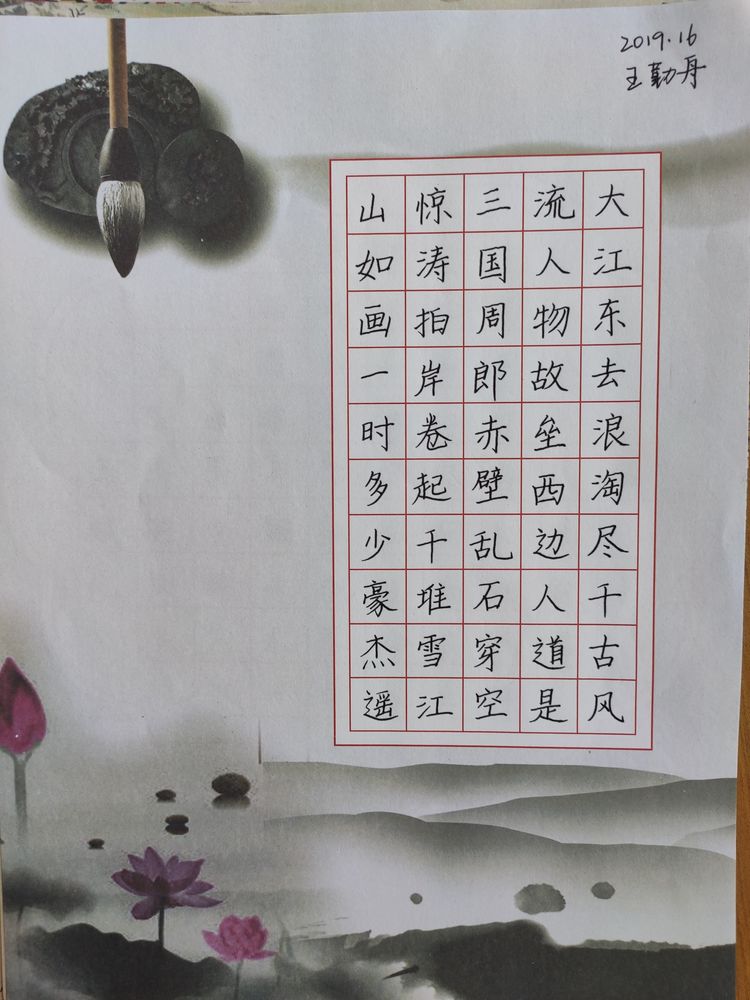 2019.16
王勤丹
大江东去浪淘尽千古风
流人物故垒西边人道是
三国周郎赤壁乱石穿空
惊涛拍岸卷起千堆雪江
山如画一时多少豪杰遥